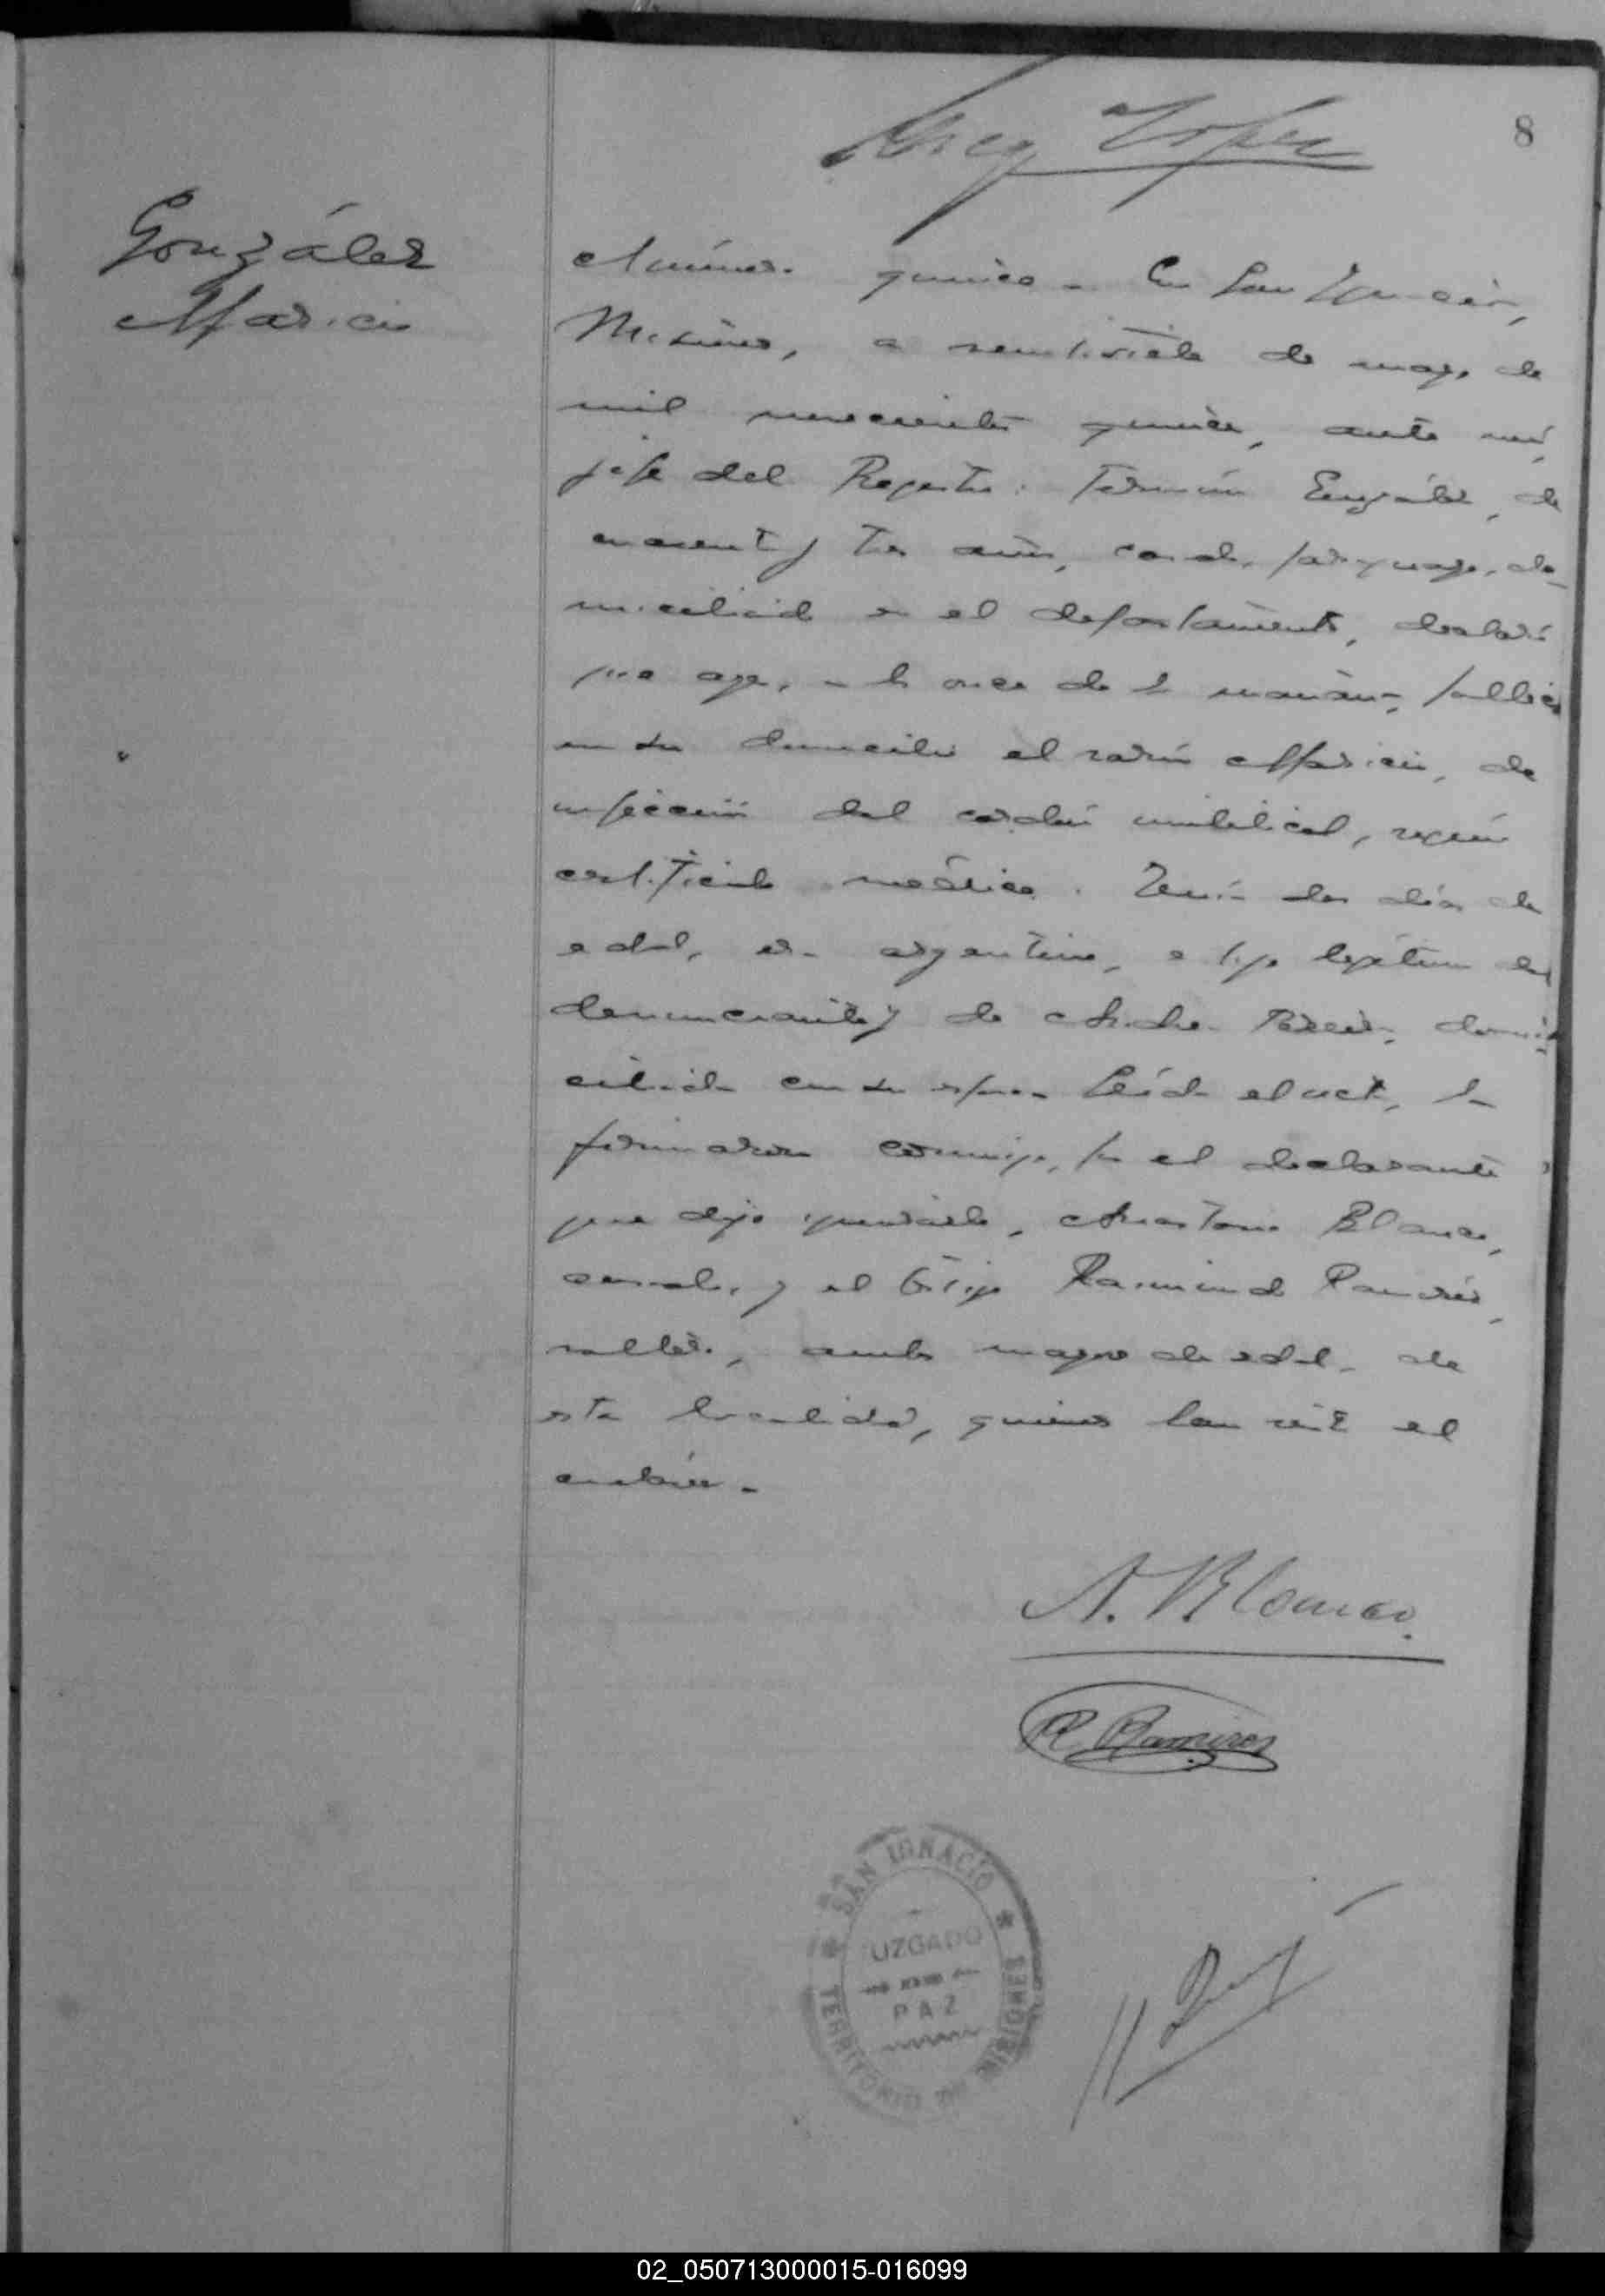 8
González
Número quince - En San Ignacio,
Misiones, a veintisiete de mayo de
mil novecientos quince, ante mí,
jefe del Registro: Fermín González, de
cuarenta y tres años, casado, paraguayo, do-
miciliado en el departamento, declaró
que ayer, a las once de la mañana, falleció
en su domicilio el varón de
infección del cordón umbilical, según
certificado médico. Tenía dos días de
edad, era argentino, e hijo legítimo del
denunciante y de domi-
ciliada con su esposo. Leída el acta, la
firmaron conmigo, por el declarante
que dijo ignorarlo, Blanco,
casado, y el testigo Raimundo Ramírez,
soltero, ambos mayores de edad, de
esta localidad, quienes han visto el
cadáver.-
A. Blanco.
R. Ramírez
SAN IGNACIO
JUZGADO
DE
PAZ
TERRITORIO DE MISIONES
02_050713000015-016099